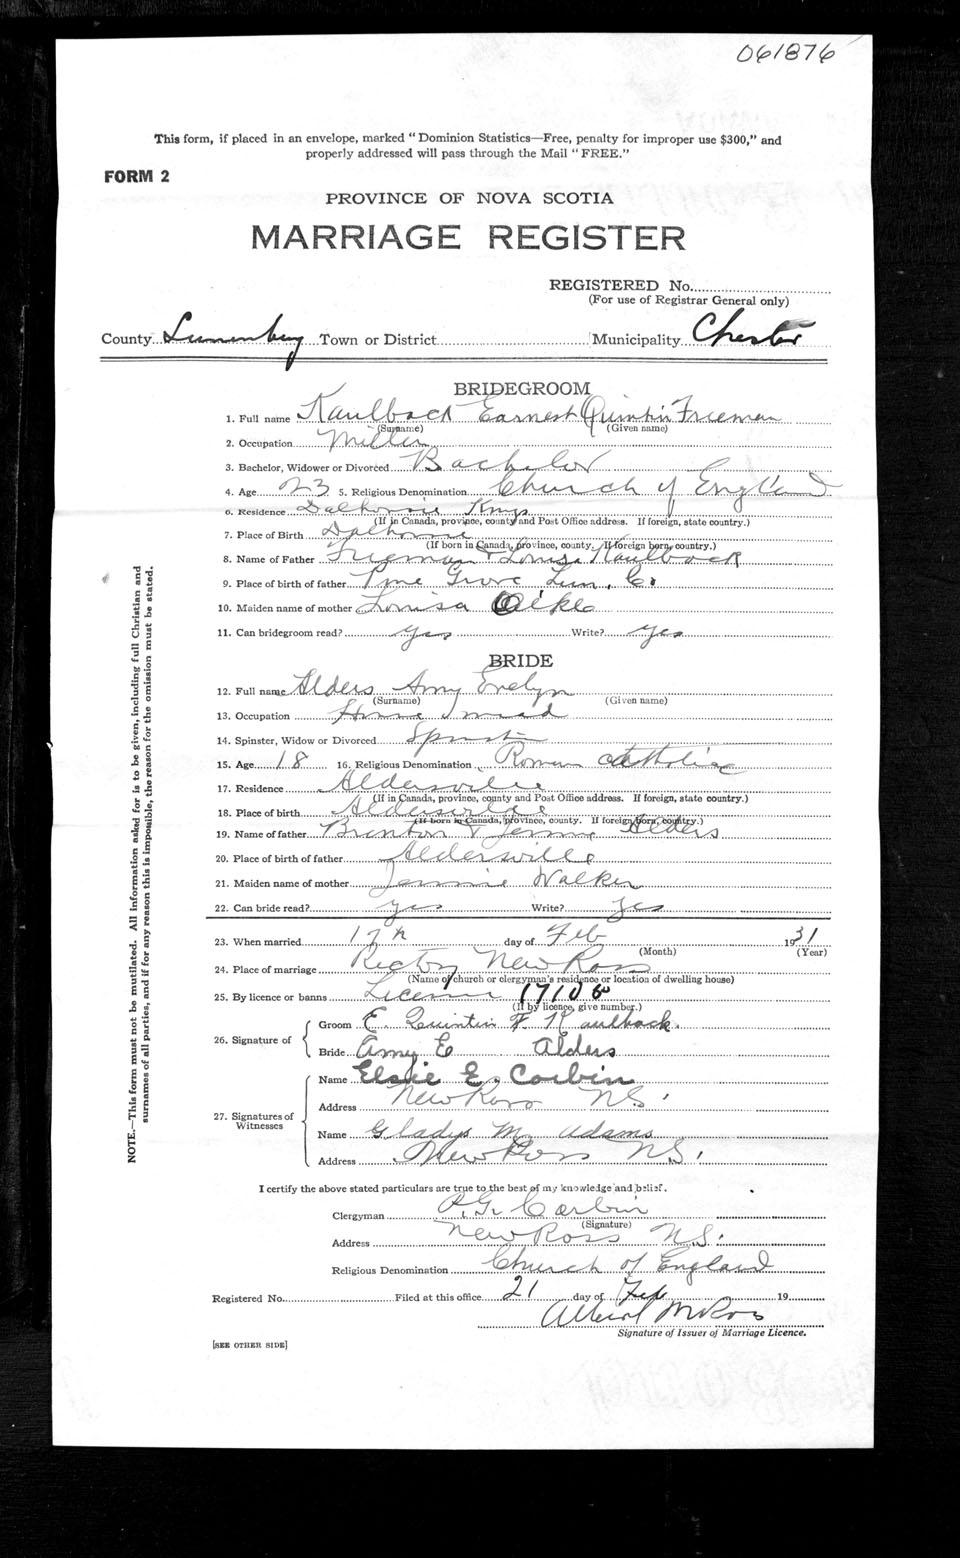 061876
This form, if placed in an envelope, marked "Dominion Statistics—Free, penalty for improper use $300," and
properly addressed will pass through the Mail "FREE."
FORM 2
PROVINCE OF NOVA SCOTIA
MARRIAGE REGISTER
REGISTERED No.
(For use of Registrar General only)
County Lunenburg Town or District Municipality Chester
BRIDEGROOM
1. Full name Kaulback Earnest Quintin Freeman
(Surname) (Given name)
2. Occupation Miller
3. Bachelor, Widower or Divorced Bachelor
4. Age 23 5. Religious Denomination Church of England
6. Residence Dalhousie Kings
(If in Canada, province, county and Post Office address. If foreign, state country.)
7. Place of Birth Dalhousie
(If born in Canada, province, county. If foreign born, country.)
8. Name of Father Freeman & Louisa Kaulback
9. Place of birth of father Pine Grove Lun. Co.
10. Maiden name of mother Louisa
11. Can bridegroom read? yes Write? yes
BRIDE
12. Full name Alders Amy Evelyn
(Surname) (Given name)
13. Occupation
14. Spinster, Widow or Divorced
15. Age 18 16. Religious Denomination Roman Catholic
17. Residence Aldersville
(If in Canada, province, county and Post Office address. If foreign, state country.)
18. Place of birth Aldersville
(If born in Canada, province, county. If foreign born, country.)
19. Name of father Brenton & Jennie Alders
20. Place of birth of father Aldersville
21. Maiden name of mother Jennie Walker
22. Can bride read? yes Write? yes
23. When married day of Feb 1931
(Month) (Year)
24. Place of marriage Rectory New Ross
(Name of church or clergyman's residence or location of dwelling house)
25. By licence or banns License
(If by licence, give number.)
26. Signature of
Groom E. Quintin F. Kaulback.
Bride Amy E Alders
27. Signatures of Witnesses
Name Elsie E. Corbin
Address New Ross N.S.
Name Gladys M. Adams
Address New Ross N.S.
I certify the above stated particulars are true to the best of my knowledge and belief.
Clergyman Corbin
(Signature)
Address New Ross N.S.
Religious Denomination Church of England
Registered No. Filed at this office 21 day of Feb 19
Albert M Ross
Signature of Issuer of Marriage Licence.
[SEE OTHER SIDE]
NOTE.—This form must not be mutilated. All information asked for is to be given, including full Christian and
surnames of all parties, and if for any reason this is impossible, the reason for the omission must be stated.